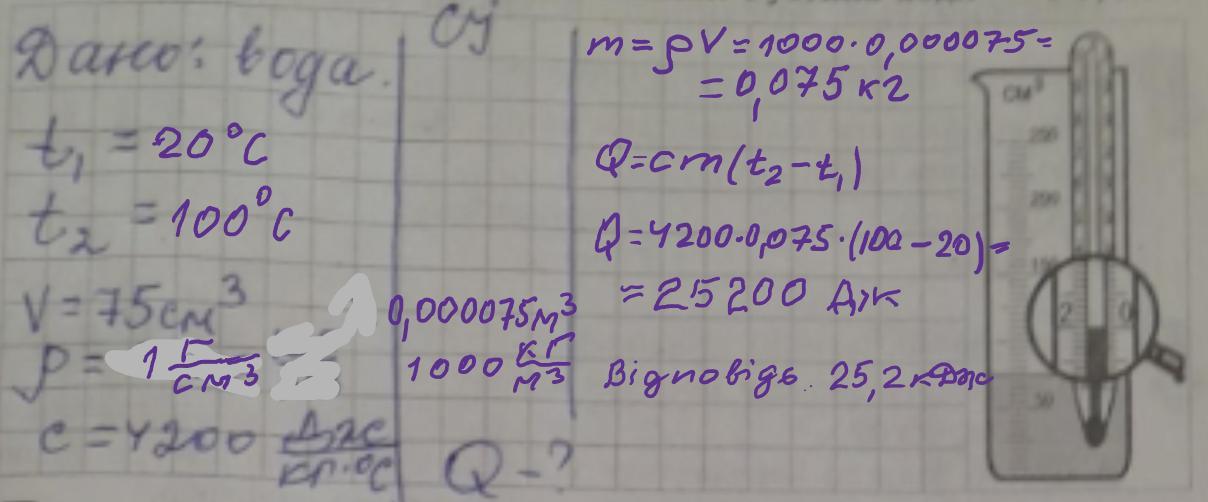 Дано: вода.
t₁ = 20°C
t₂ = 100°C
V = 75см³
ρ = 1 г/см³
c = 4200 Дж/кг·°C
Сі
0,000075м³
1000 кг/м³
Q - ?
m = ρV = 1000·0,000075=
= 0,075 кг
Q=cm(t₂-t₁)
Q=4200·0,075·(100-20)=
= 25200 Дж
Відповідь. 25,2 кДж
см³
250
200
150
2 0
50